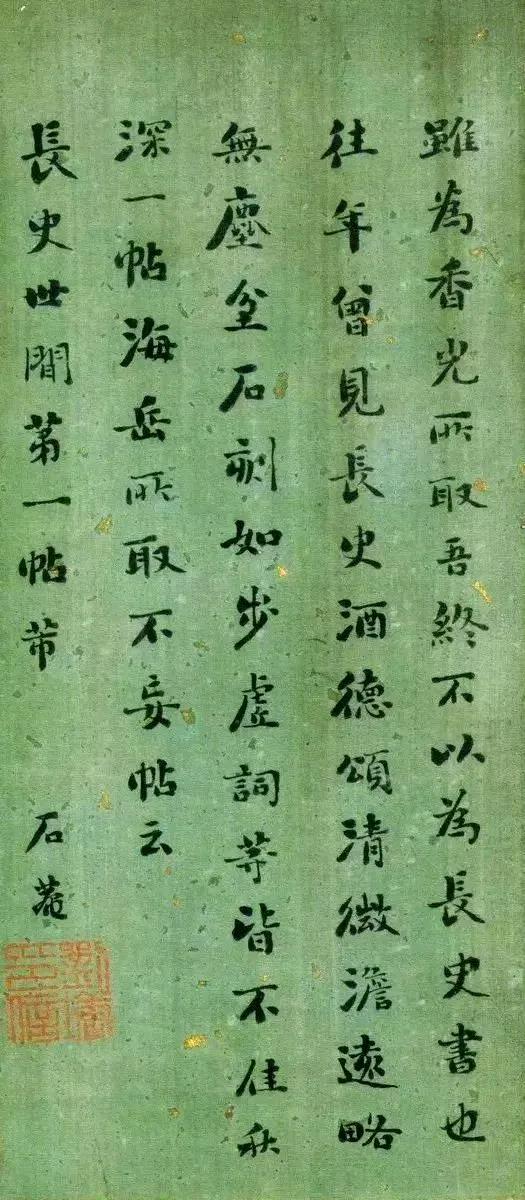 雖為香光所取吾終不以為長史書也
往年曾見長史酒德頌清微澹遠略
無塵坌石刻如步虛詞等皆不佳秋
深一帖海岳所取不妄帖云
長史世間第一帖芾
石菴